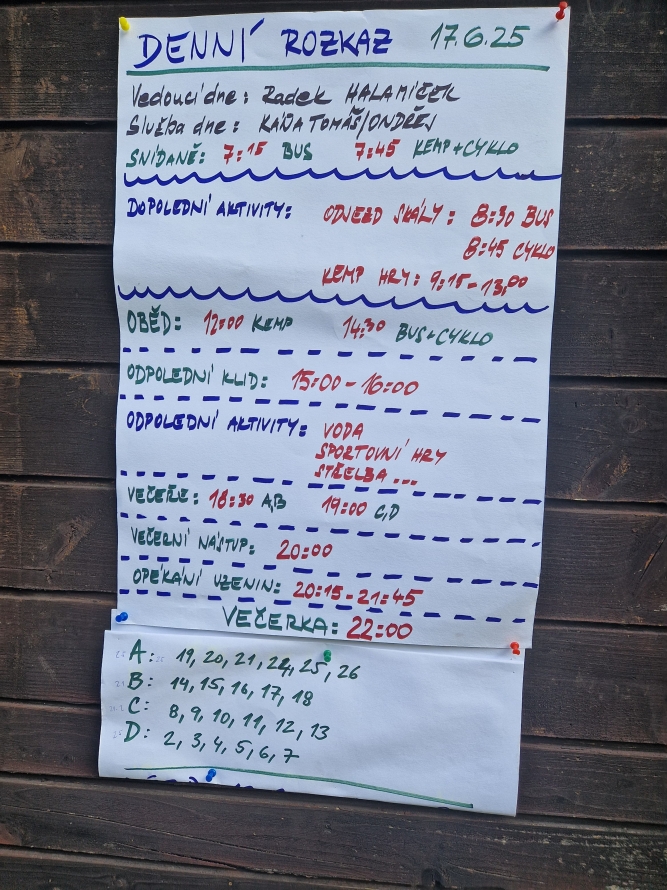 DENNÍ ROZKAZ 17.6.25
Vedoucí dne: Radek HALAMÍČEK
Služba dne: KÁŇA TOMÁŠ/ONDŘEJ
SNÍDANĚ: 7:15 BUS 7:45 KEMP+CYKLO
DOPOLEDNÍ AKTIVITY: ODJEZD SKÁLY: 8:30 BUS
8:45 CYKLO
KEMP HRY: 9:15-13,00
OBĚD: 12:00 KEMP 14:30 BUS+CYKLO
ODPOLEDNÍ KLID: 15:00-16:00
ODPOLEDNÍ AKTIVITY: VODA
SPORTOVNÍ HRY
STŘELBA ...
VEČEŘE: 18:30 A,B 19:00 C,D
VEČERNÍ NÁSTUP: 20:00
OPÉKÁNÍ UZENIN: 20:15-21:45
VEČERKA: 22:00
A: 19, 20, 21, 24, 25, 26
B: 14, 15, 16, 17, 18
C: 8, 9, 10, 11, 12, 13
D: 2, 3, 4, 5, 6, 7